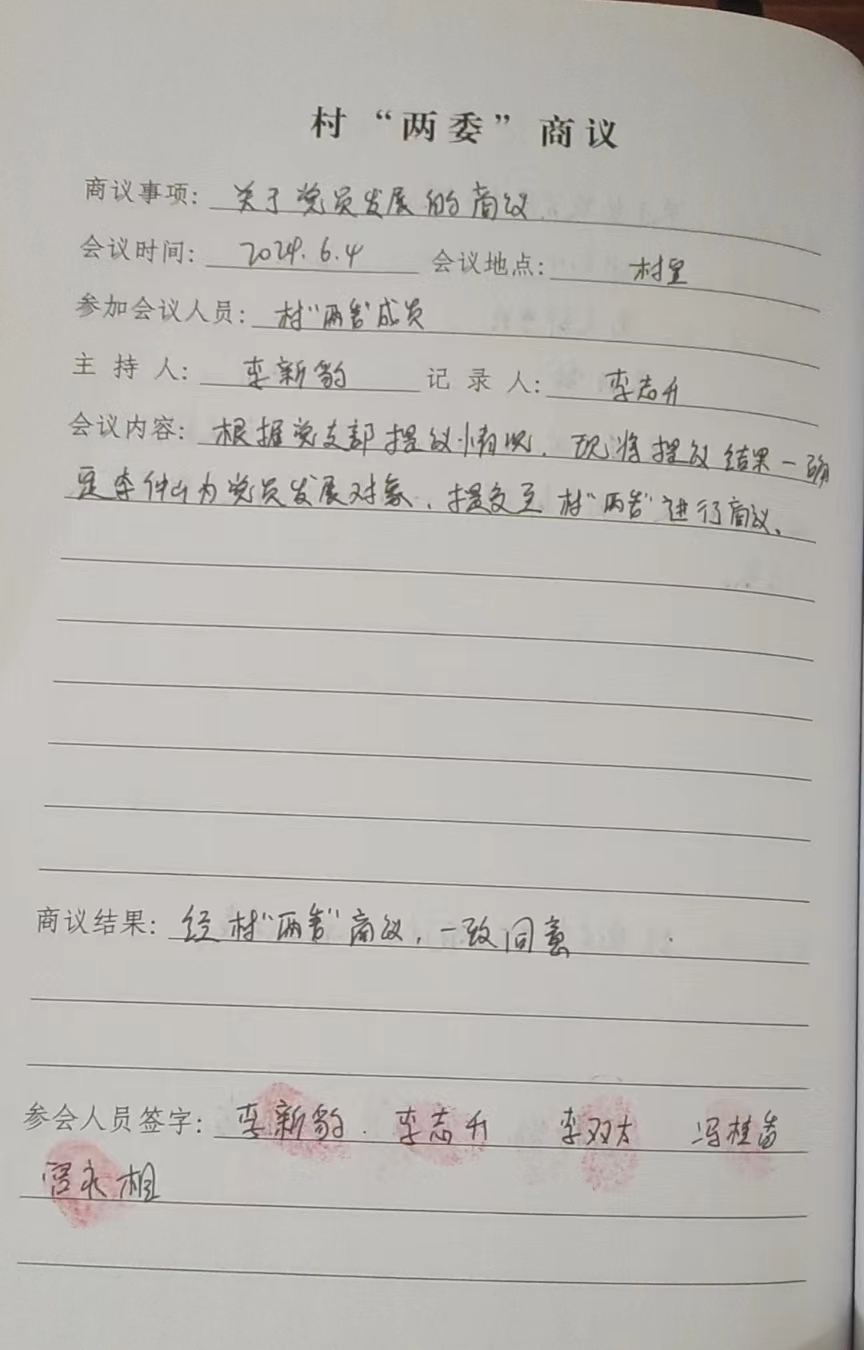 村“两委”商议
商议事项：关于党员发展的商议.
会议时间：2024.6.4 会议地点：村里
参加会议人员：村“两委”成员
主持人：李新豹 记录人：李志升
会议内容：根据党支部提议情况，现将提议结果—确
定李仲山为党员发展对象，提交至村“两委”进行商议。
商议结果：经村“两委”商议，一致同意
参会人员签字：李新豹. 李志升 李双太 冯桂香
永相